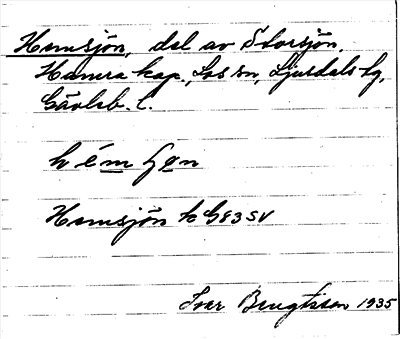 Hemsjön, del av Storsjön,
Hamra kap., Los sn, Ljusdals tg,
Gävleb. l.
hémʃǫn
Hemsjön k G83SV
Ivar Bengtsson 1935